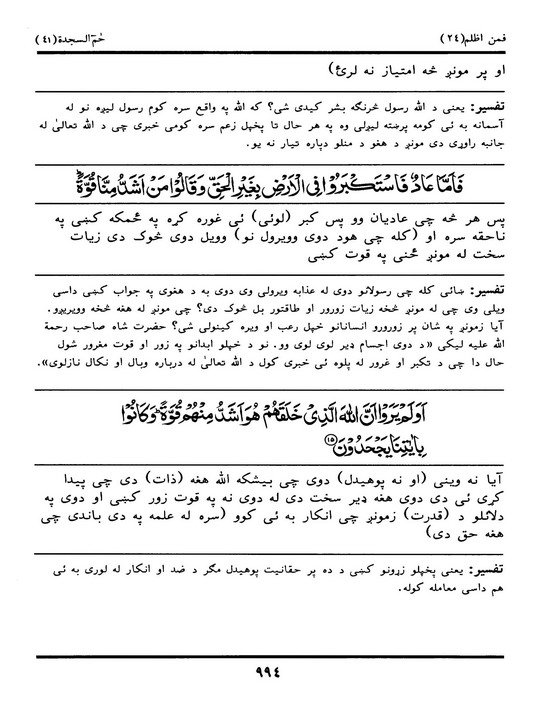 فمن اظلم(٢٤) حٰمٓ السجدة(٤١)
او پر مونږ څه امتیاز نه لرئ)
تفسیر: یعنی د الله رسول څرنګه بشر کیدی شی؟ که الله په واقع سره کوم رسول لیږه نو له
آسمانه به ئی کومه پرښته لیږلی وه په هر حال تا پخپل زعم سره کومی خبری چی د الله تعالیٰ له
جانبه راوړی دی مونږ د هغو د منلو دپاره تیار نه یو.
فَاَمَّا عَادٌ فَاسْتَكْبَرُوْا فِی الْاَرْضِ بِغَیْرِ الْحَقِّ وَقَالُوْا مَنْ اَشَدُّ مِنَّا قُوَّةً
پس هر څه چی عادیان وو پس کبر (لوئی) ئی غوره کړه په ځمکه کښی په
ناحقه سره او (کله چی هود دوی وویرول نو) وویل دوی څوک دی زیات
سخت له مونږ ځنی په قوت کښی
تفسیر: ښائی کله چی رسولانو دوی له عذابه ویرولی وی دوی به د هغوی په جواب کښی داسی
ویلی وی چی له مونږ څخه زیات زورور او طاقتور بل څوک دی؟ چی مونږ له هغه څخه وویریږو.
آیا زمونږ په شان پر زورورو انسانانو خپل رعب او ویره کینولی شی؟ حضرت شاه صاحب رحمة
الله علیه لیکی «د دوی اجسام ډیر لوی لوی وو. نو د خپلو ابدانو په زور او قوت مغرور شول
حال دا چی د تکبر او غرور له پلوه ئی خبری کول د الله تعالیٰ له درباره وبال او نکال نازلوی».
اَوَلَمْ یَرَوْا اَنَّ اللّٰهَ الَّذِیْ خَلَقَهُمْ هُوَ اَشَدُّ مِنْهُمْ قُوَّةً وَكَانُوْا
بِاٰیٰتِنَا یَجْحَدُوْنَ ﴿١٥﴾
آیا نه وینی (او نه پوهیدل) دوی چی بیشکه الله هغه (ذات) دی چی پیدا
کړی ئی دی دوی هغه ډیر سخت دی له دوی نه په قوت زور کښی او دوی په
دلائلو د (قدرت) زمونږ چی انکار به ئی کوو (سره له علمه په دی باندی چی
هغه حق دی)
تفسیر: یعنی پخپلو زړونو کښی د ده پر حقانیت پوهیدل مګر د ضد او انکار له لوری به ئی
هم داسی معامله کوله.
٩٩٤